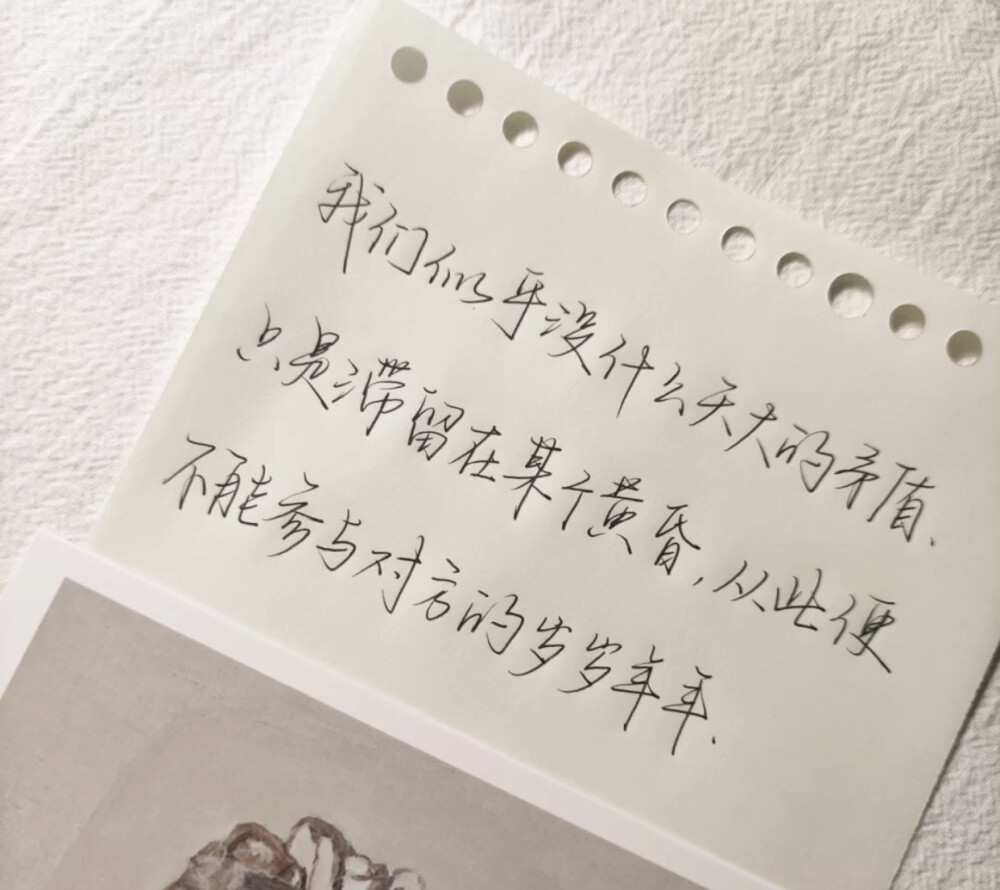 我们似乎没什么天大的矛盾.
只是滞留在某个黄昏,从此便
不能参与对方的岁岁年年.